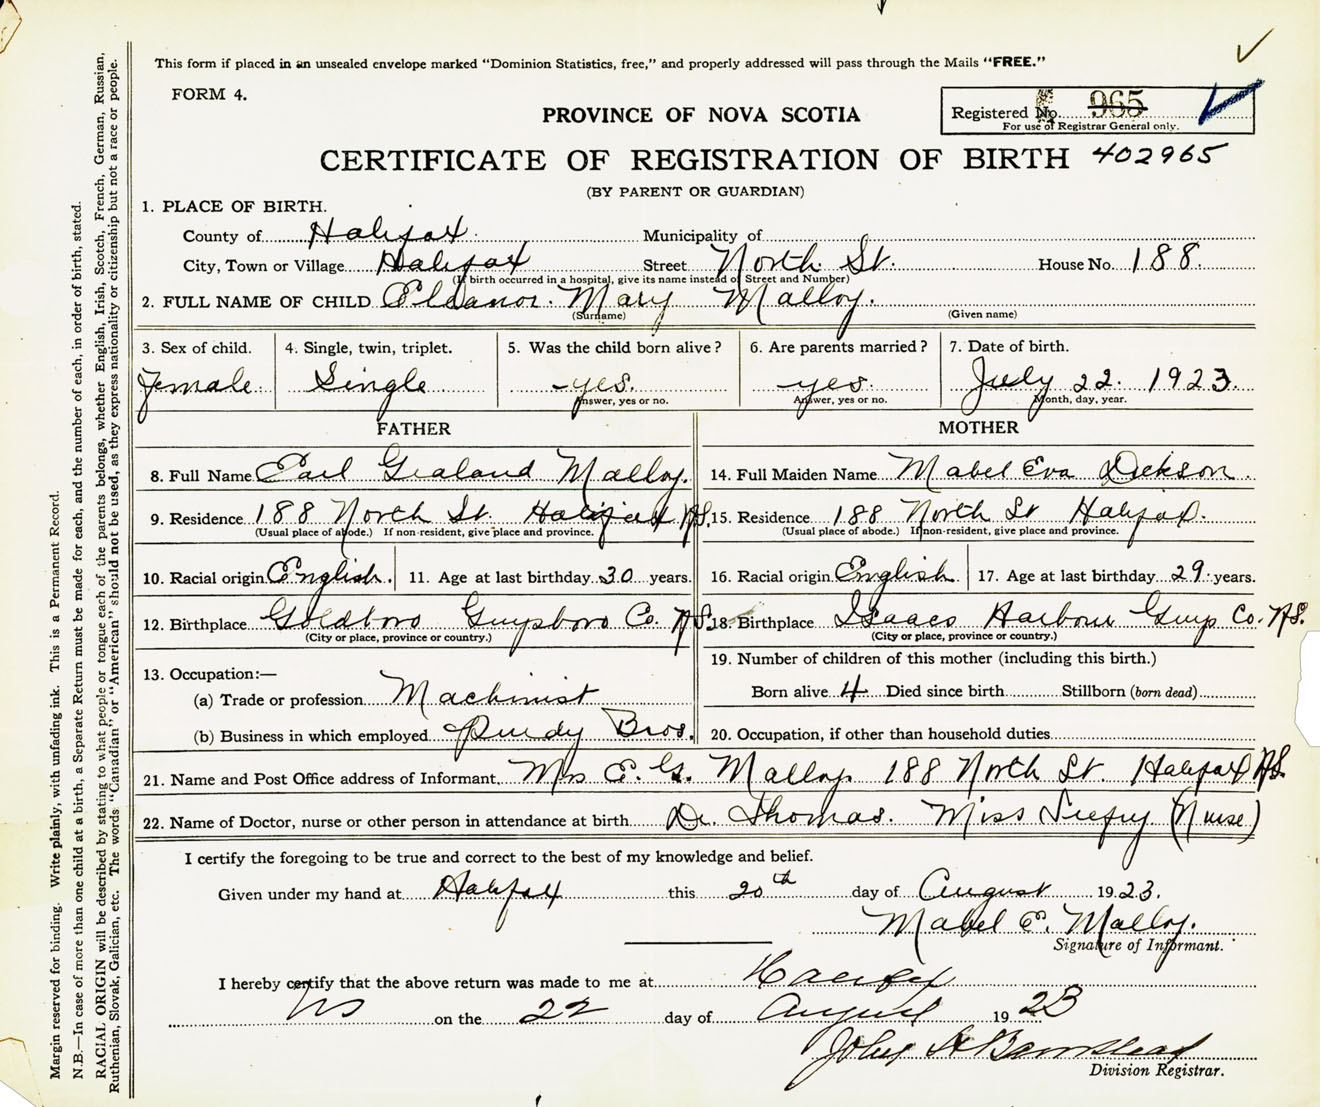 This form if placed in an unsealed envelope marked "Dominion Statistics, free," and properly addressed will pass through the Mails "FREE."
FORM 4.
PROVINCE OF NOVA SCOTIA
Registered No. 965
For use of Registrar General only.
CERTIFICATE OF REGISTRATION OF BIRTH 402965
(BY PARENT OR GUARDIAN)
1. PLACE OF BIRTH.
County of Halifax Municipality of
City, Town or Village Halifax Street North St. House No. 188.
(If birth occurred in a hospital, give its name instead of Street and Number)
2. FULL NAME OF CHILD Eleanor. Mary Malloy.
(Surname) (Given name)
3. Sex of child. 4. Single, twin, triplet. 5. Was the child born alive? 6. Are parents married? 7. Date of birth.
Female. Single yes. yes. July 22. 1923.
Answer, yes or no. Answer, yes or no. Month, day, year.
FATHER MOTHER
8. Full Name Earl Gealand Malloy. 14. Full Maiden Name Mabel Eva Dickson.
9. Residence 188 North St. Halifax N.S. 15. Residence 188 North St Halifax.
(Usual place of abode.) If non-resident, give place and province. (Usual place of abode.) If non-resident, give place and province.
10. Racial origin English. 11. Age at last birthday 30 years. 16. Racial origin English 17. Age at last birthday 29. years.
12. Birthplace Goldboro Guysboro Co. N.S. 18. Birthplace Isaacs Harbour Guys Co. N.S.
(City or place, province or country.) (City or place, province or country.)
13. Occupation:— 19. Number of children of this mother (including this birth.)
(a) Trade or profession Machinist Born alive 4 Died since birth Stillborn (born dead)
(b) Business in which employed Purdy Bros. 20. Occupation, if other than household duties
21. Name and Post Office address of Informant. Mrs E. G. Malloy 188 North St. Halifax N.S.
22. Name of Doctor, nurse or other person in attendance at birth Dr. Thomas. Miss (Nurse)
I certify the foregoing to be true and correct to the best of my knowledge and belief.
Given under my hand at Halifax this 20th day of August 1923.
Mabel E. Malloy.
Signature of Informant.
I hereby certify that the above return was made to me at Halifax
NS on the 22 day of August 1923
John A Barnstead
Division Registrar.
Margin reserved for binding. Write plainly, with unfading ink. This is a Permanent Record.
N.B.—In case of more than one child at a birth, a Separate Return must be made for each, and the number of each, in order of birth, stated.
RACIAL ORIGIN will be described by stating to what people or tongue each of the parents belongs, whether English, Irish, Scotch, French, German, Russian,
Ruthenian, Slovak, Galician, etc. The words "Canadian" or "American" should not be used, as they express nationality or citizenship but not a race or people.